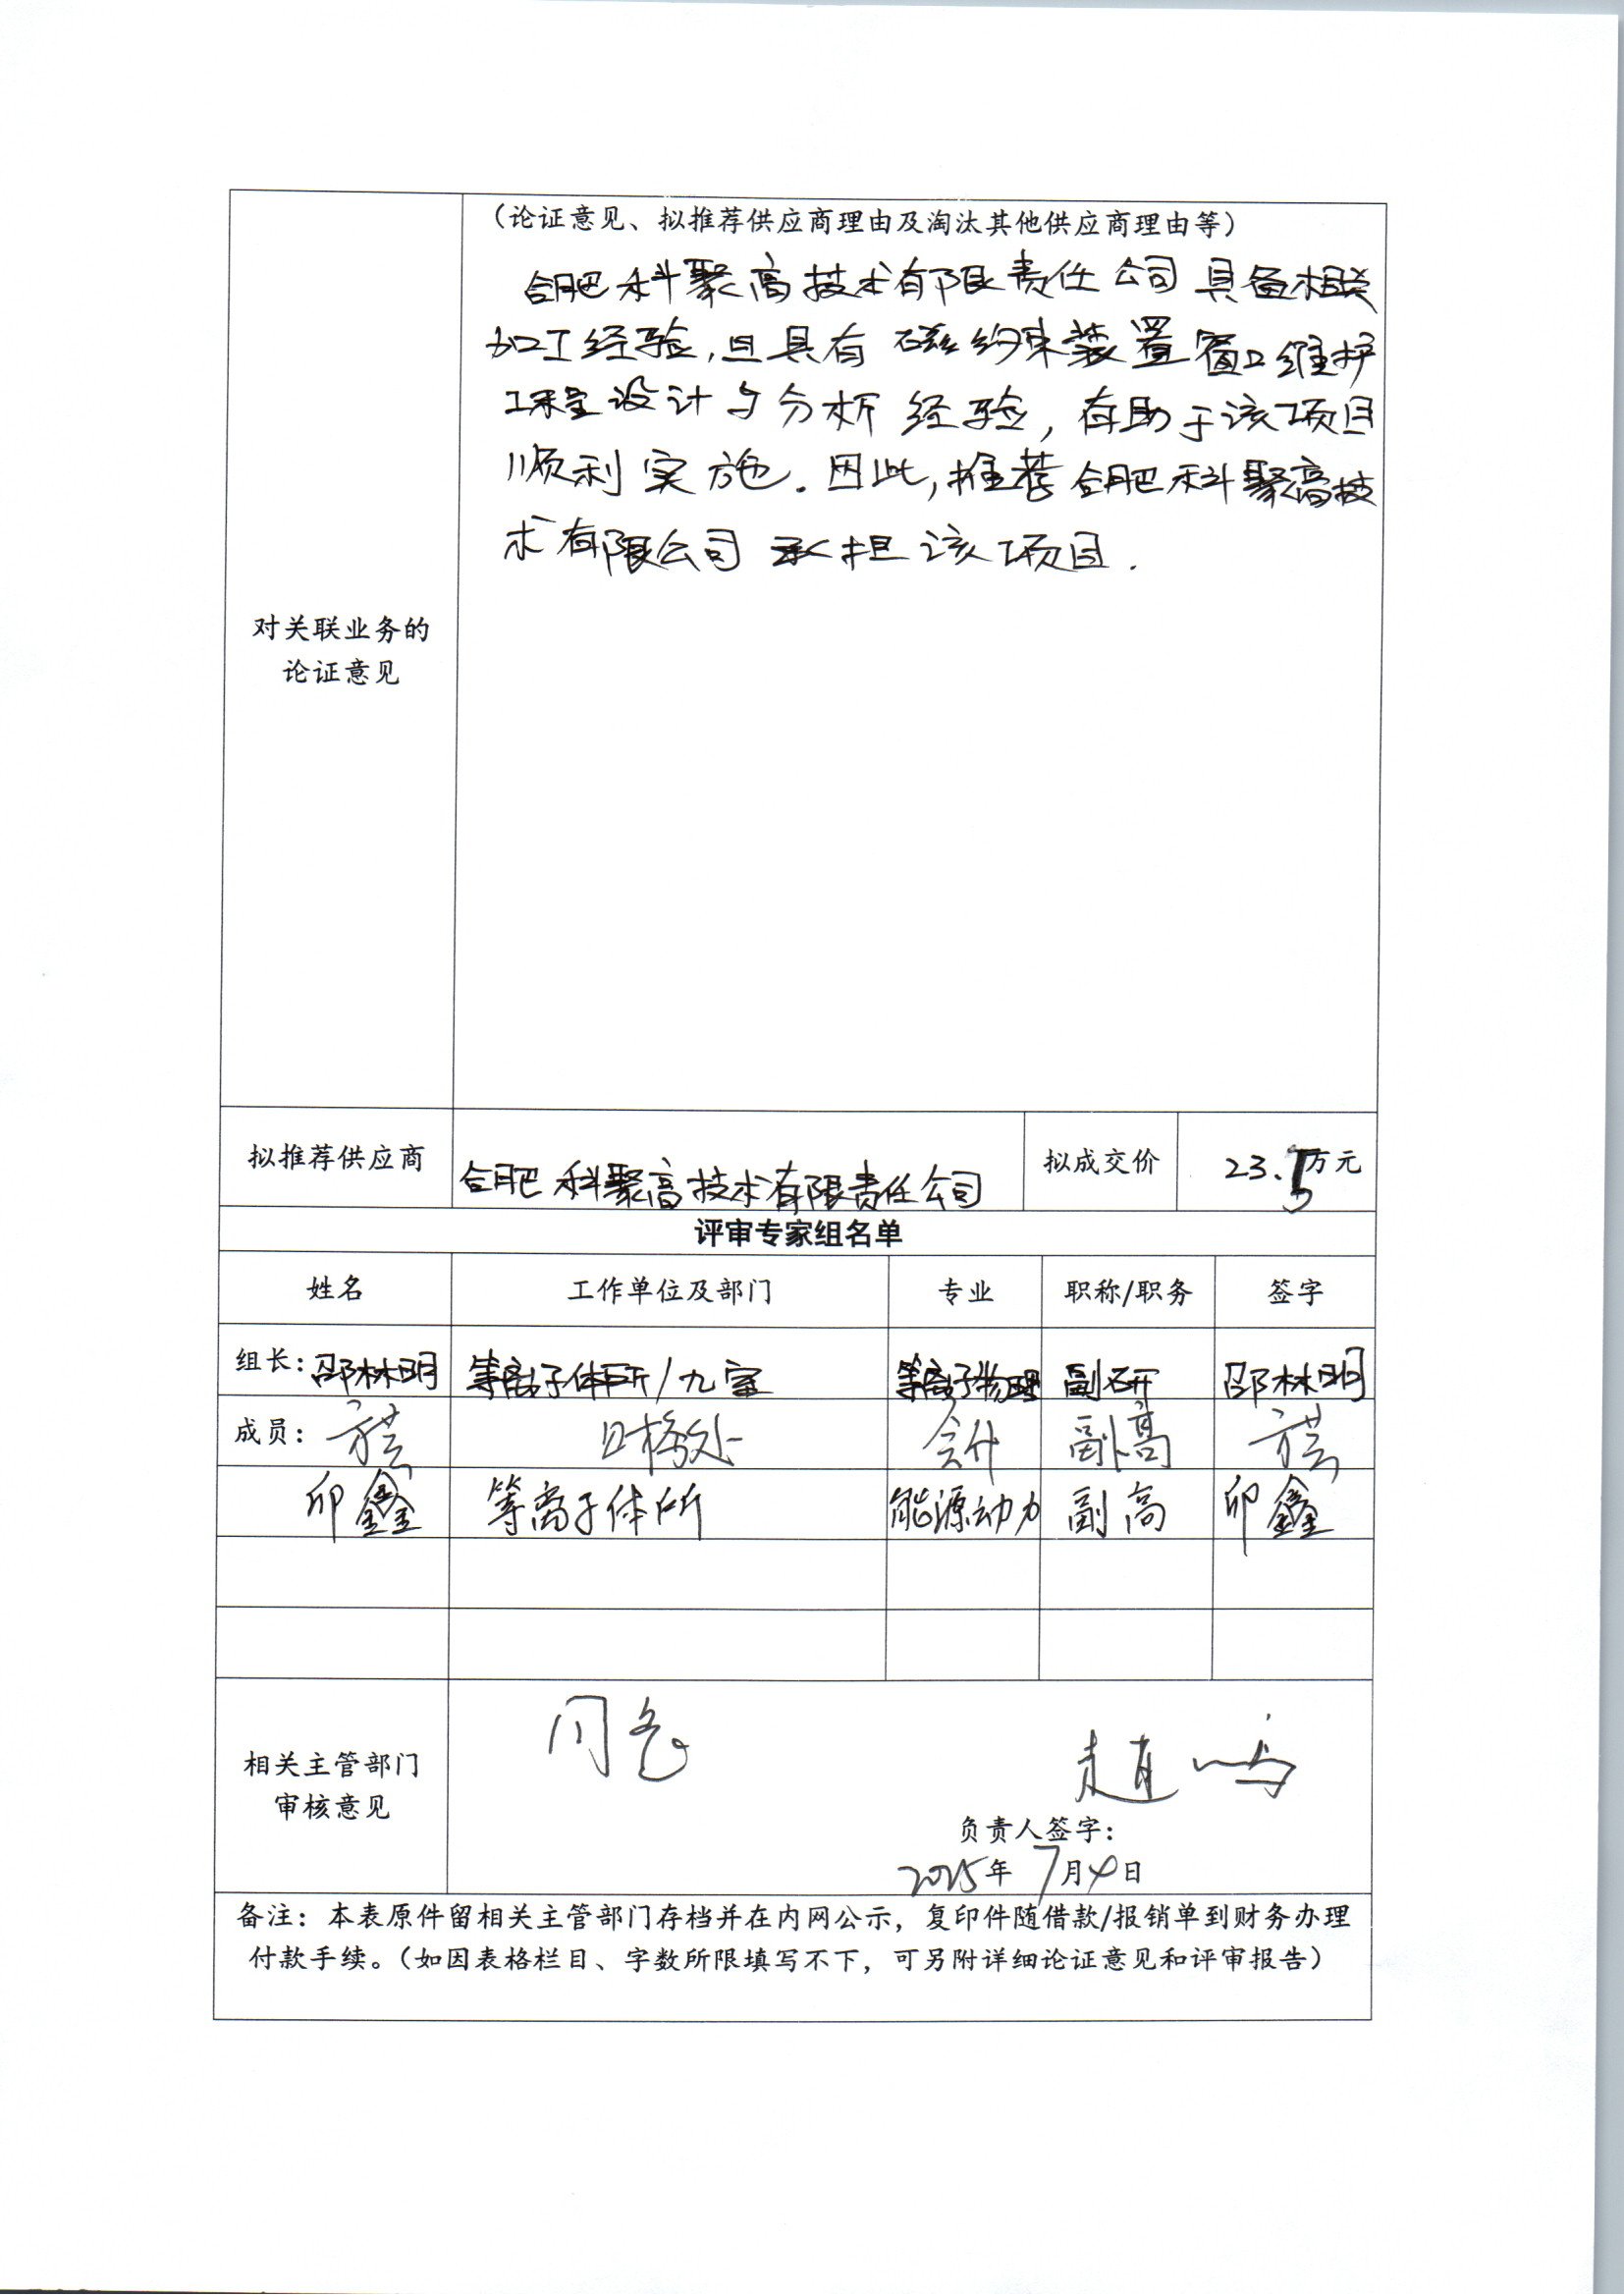 （论证意见、拟推荐供应商理由及淘汰其他供应商理由等）
合肥科聚高技术有限责任公司具备相关
加工经验,且具有磁约束装置窗口维护
工程设计与分析经验,有助于该项目
顺利实施.因此,推荐合肥科聚高技
术有限公司承担该项目.
对关联业务的
论证意见
拟推荐供应商 合肥科聚高技术有限责任公司 拟成交价 23.5万元
评审专家组名单
姓名 工作单位及部门 专业 职称/职务 签字
组长：邵林明 等离子体所/九室 等离子物理 副研 邵林明
成员： 会计 副高
卯鑫 等离子体所 能源动力 副高 卯鑫
同意
相关主管部门
审核意见
负责人签字：
2025年7月4日
备注：本表原件留相关主管部门存档并在内网公示，复印件随借款/报销单到财务办理
付款手续。（如因表格栏目、字数所限填写不下，可另附详细论证意见和评审报告）